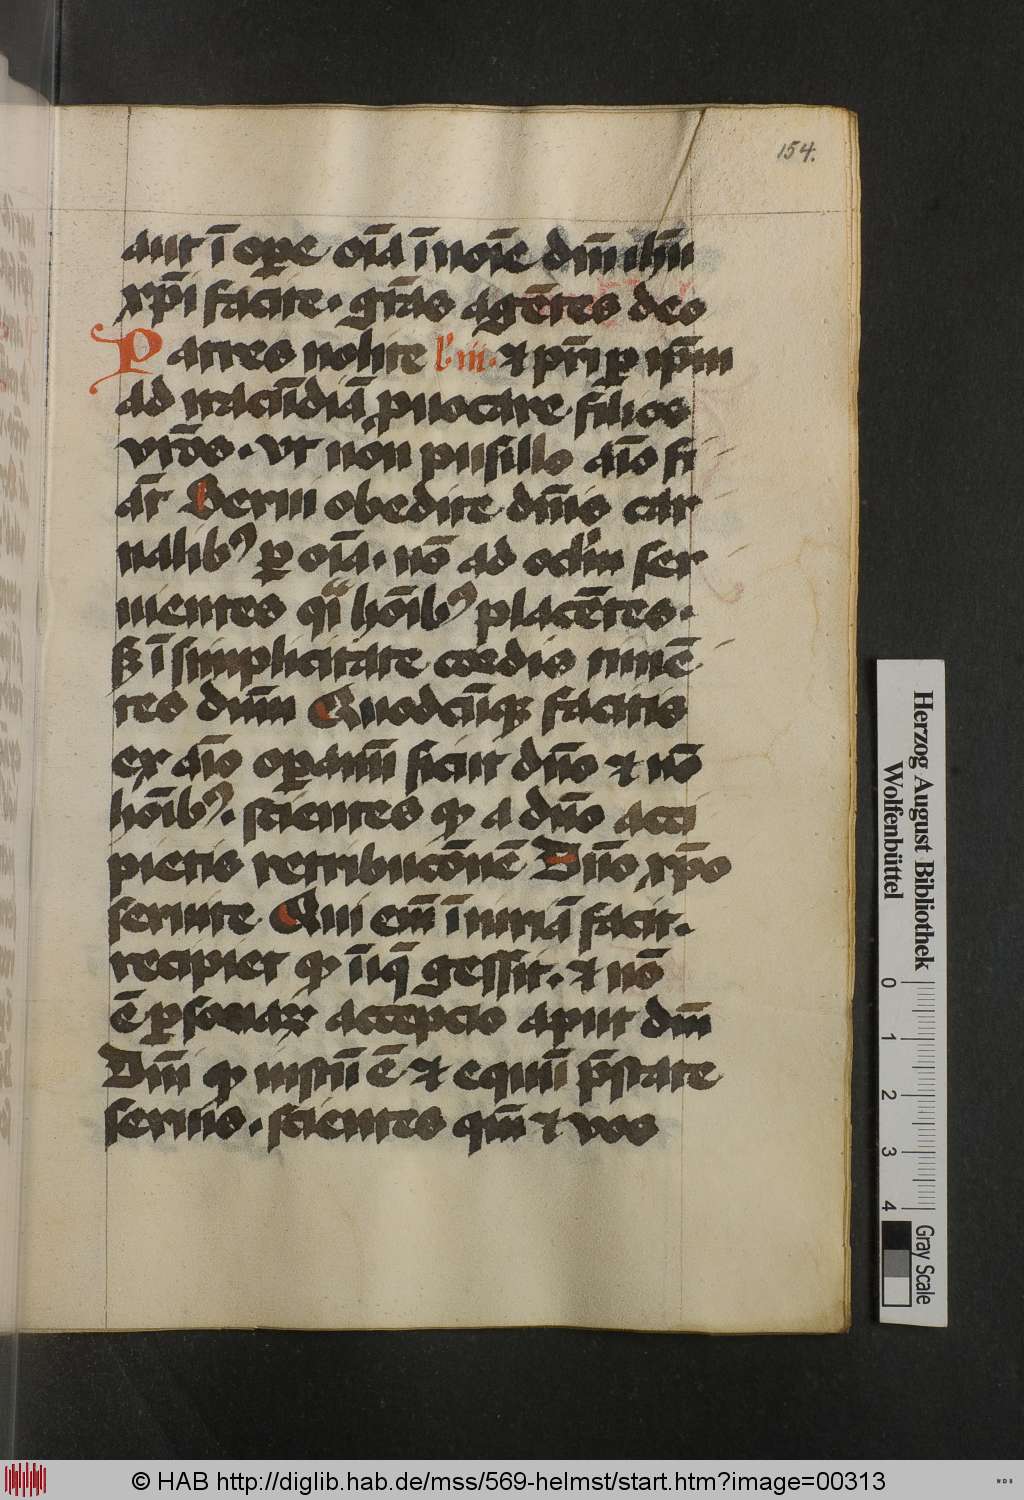 154.
aut ī oꝑe oīa ī noīe dnī ihū
xpī facite · grās agētes deo
Patres nolite lº· iii · ⁊ pri ꝑ ipm
ad iracūdiā ꝓuocare filios
vros · vt non pusillo aīo fi
āt Serui obedite dnīs car
nalibꝰ ꝑ oīa · nō ad oclm ser
uientes qi hoībꝰ placētes ·
sꝫ ī simplicitate cordis timē
tes dnm Quodcūqꝫ facitis
ex aīo oꝑamī sicut dno ⁊ nō
hoībꝰ · scientes ꝙ a dno acci
pietis retribucōnē Dno xpo
seruite Qui em īiuriā facit ·
recipiet ꝙ īiq̄ gessit · ⁊ nō
ē ꝑsonaꝝ accepcio aput dm
Dnī ꝙ iustū ē ⁊ equū p̄state
seruis · scientes qm ⁊ vos
Herzog August Bibliothek
Wolfenbüttel
0 1 2 3 4
Gray Scale
© HAB http://diglib.hab.de/mss/569-helmst/start.htm?image=00313